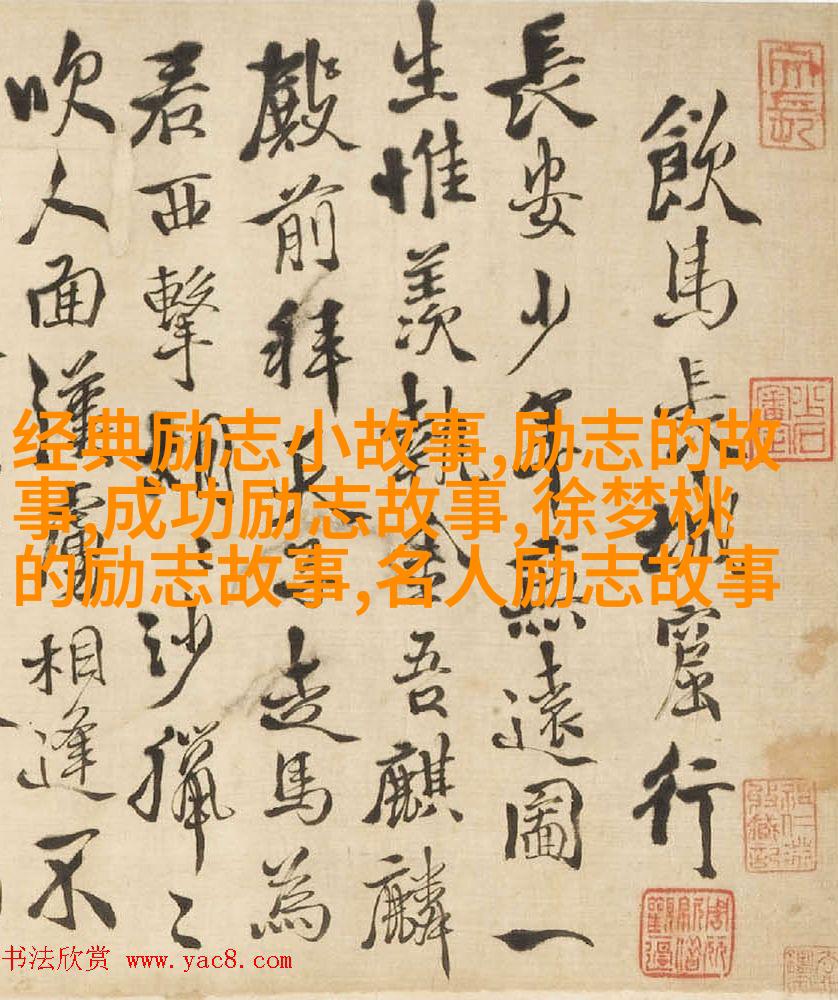 飲馬長城窟行
長安少年無遠圖一
生惟羨執金吾麒麟
殿前拜天子走馬為
君西擊胡〻沙獵〻
吹人面漢虜相逢不
经典励志小故事,励志的故
事,成功励志故事,徐梦桃
的励志故事,名人励志故事
书法欣赏 www.yac8.com